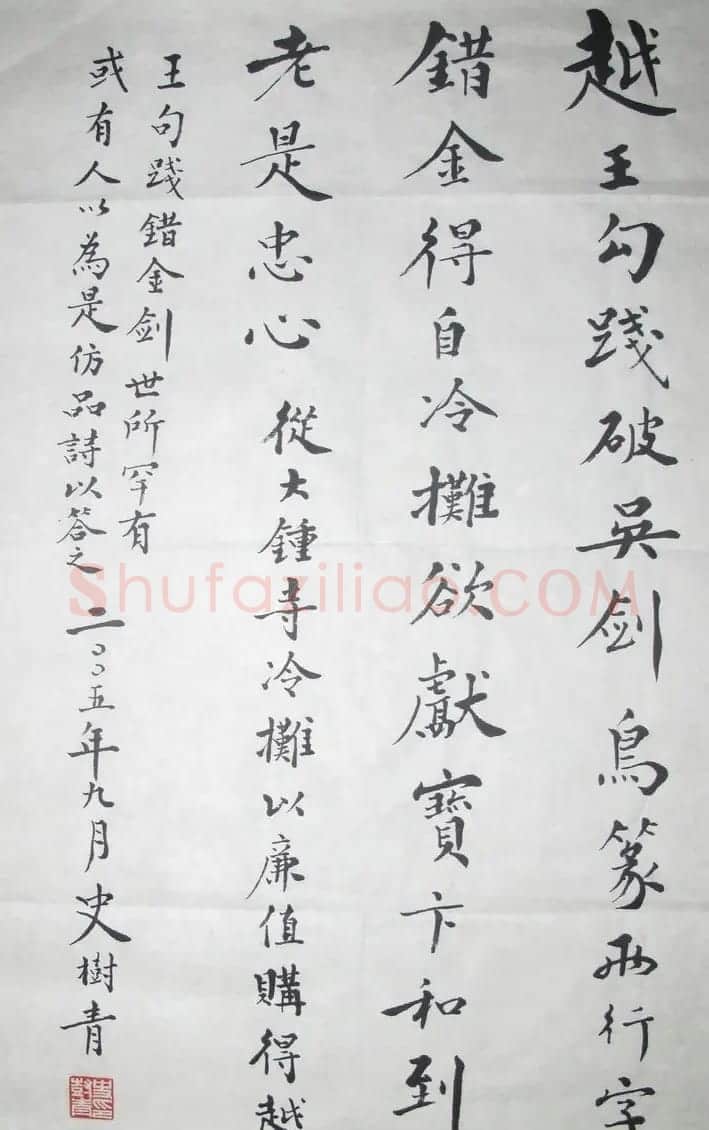 越王勾踐破吳劍鳥篆兩行字
錯金得自冷攤欲獻寶卞和到
老是忠心從大鍾寺冷攤以廉值購得越
王句踐錯金劍世所罕有
或有人以為是仿品詩以答之二〇〇五年九月史樹青
Shufaziliao.COM